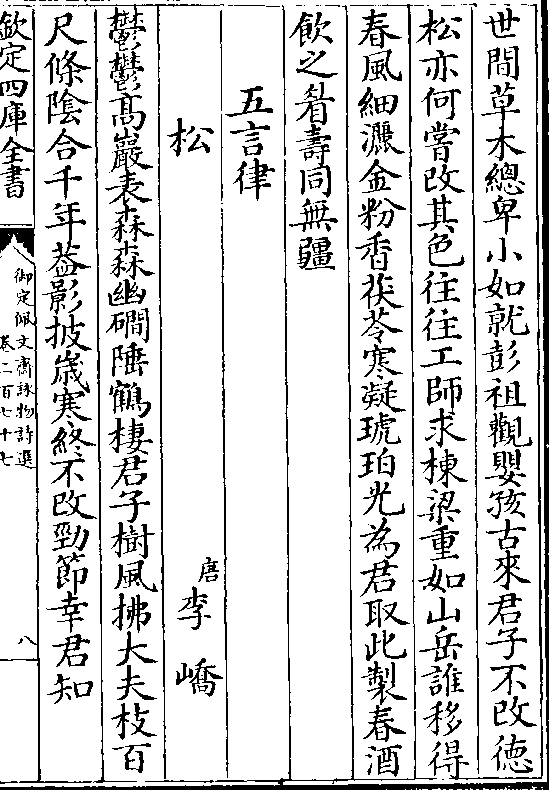 世間草木總卑小如就彭祖觀嬰孩古來君子不改德
松亦何嘗改其色往往工師求棟梁重如山岳誰移得
春風細灑金粉香茯苓寒凝琥珀光為君取此製春酒
飲之眉壽同無疆
五言律
松
唐李嶠
鬱鬱高巖表森森幽磵陲鶴棲君子樹風拂大夫枝百
尺條陰合千年葢影披歲寒終不改勁節幸君知
欽定四庫全書
御定佩文齋詠物詩選
卷二百七十七
八